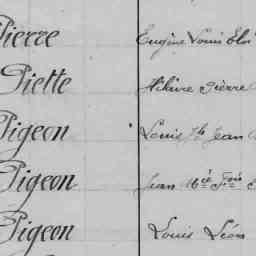 Pierre Eugène Louis Eloi
Piette Hilaire Pierre
Pigeon Louis Jh Jean
Pigeon Jean Mie Frois
Pigeon Louis Léon